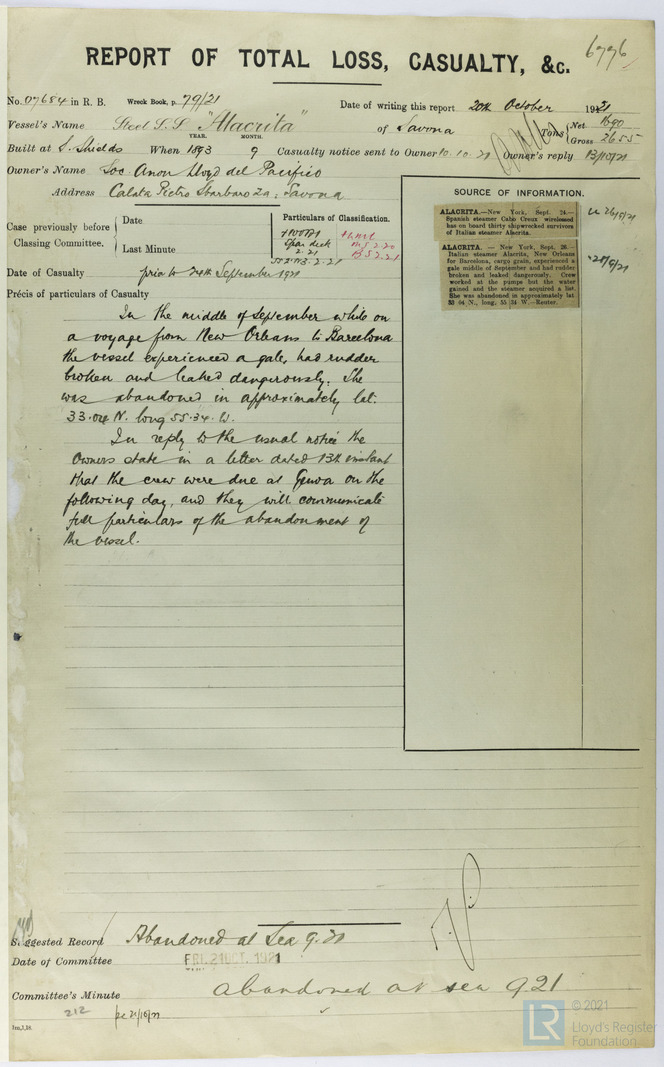 6776
REPORT OF TOTAL LOSS, CASUALTY, &c.
No. 07684 in R. B. Wreck Book, p. 79/21 Date of writing this report 20th October 1921
Vessel's Name Steel S.S "Alacrita" of Savona Tons { Net 1690 Gross 2655
Built at S. Shields When YEAR. 1893 MONTH. 9 Casualty notice sent to Owner 10.10.21 Owner's reply 13/10/21
Owner's Name Soc. Anon Lloyd del Pacifico
Address Calata Pietro Sbarbaro 2a; Savona
Case previously before Classing Committee. { Date
Last Minute
Particulars of Classification.
+100A1
Spar deck
2.21
Date of Casualty prior to 24th September 1921
Précis of particulars of Casualty
In the middle of September while on
a voyage from New Orleans to Barcelona
the vessel experienced a gale, had rudder
broken and leaked dangerously. She
was abandoned in approximately lat:
33.04 N. long 55.34. W.
In reply to the usual notice the
Owners state in a letter dated 13th instant
that the crew were due at Genoa on the
following day, and they will communicate
full particulars of the abandonment of
the vessel.
SOURCE OF INFORMATION.
ALACRITA.—New York, Sept. 24.—
Spanish steamer Cabo Creux wirelessed
has on board thirty shipwrecked survivors
of Italian steamer Alacrita.
ALACRITA. — New York, Sept. 26.—
Italian steamer Alacrita, New Orleans
for Barcelona, cargo grain, experienced a
gale middle of September and had rudder
broken and leaked dangerously. Crew
worked at the pumps but the water
gained and the steamer acquired a list.
She was abandoned in approximately lat
33 04 N., long. 55 34 W.—Reuter.
26/9/21
27/9/21
Suggested Record Abandoned at Sea 9.21
Date of Committee FRI. 21 OCT. 1921
Committee's Minute abandoned at sea 9 21
212
21/10/21
© 2021
Lloyd's Register
Foundation
LR